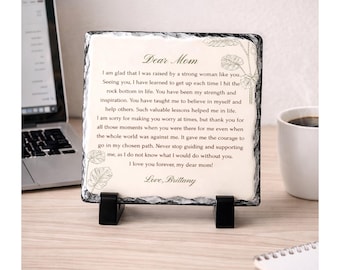 Dear Mom
I am glad that I was raised by a strong woman like you.
Seeing you, I have learned to get up each time I hit the
rock bottom in life. You have been my strength and
inspiration. You have taught me to believe in myself and
help others. Such valuable lessons helped me in life.
I am sorry for making you worry at times, but thank you for
all those moments when you were there for me even when
the whole world was against me. It gave me the courage to
go in my chosen path. Never stop guiding and supporting
me, as I do not know what I would do without you.
I love you forever, my dear mom!
Love, Brittany